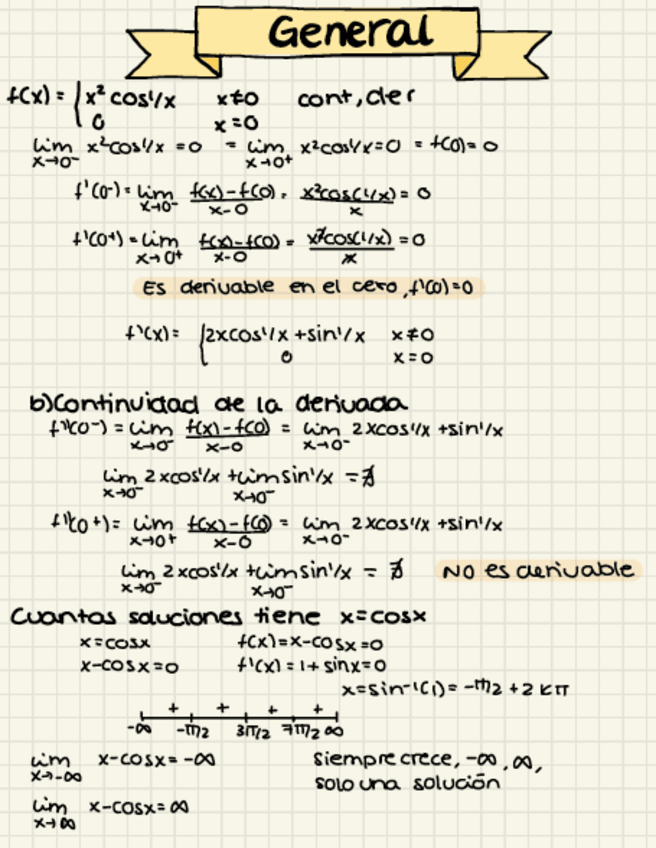 General
f(x) = { x² cos 1/x   x≠0   cont, der
0   x=0
lim x→0⁻ x²cos 1/x = 0 = lim x→0⁺ x²cos 1/x = 0 = f(0) = 0
f'(0⁻) = lim x→0⁻ (f(x)-f(0))/(x-0) = (x²cos(1/x))/x = 0
f'(0⁺) = lim x→0⁺ (f(x)-f(0))/(x-0) = (x²cos(1/x))/x = 0
Es derivable en el cero, f'(0)=0
f'(x) = { 2xcos 1/x + sin 1/x   x≠0
0   x=0
b) Continuidad de la derivada
f''(0⁻) = lim x→0⁻ (f(x)-f(0))/(x-0) = lim x→0⁻ 2xcos 1/x + sin 1/x
lim x→0⁻ 2xcos 1/x + lim x→0⁻ sin 1/x = ∄
f''(0⁺) = lim x→0⁺ (f(x)-f(0))/(x-0) = lim x→0⁻ 2xcos 1/x + sin 1/x
lim x→0⁻ 2xcos 1/x + lim x→0⁻ sin 1/x = ∄   NO es derivable
Cuantas soluciones tiene x=cosx
x=cosx   f(x)=x-cosx=0
x-cosx=0   f'(x)=1+sinx=0
x=sin⁻¹(1) = -π/2 + 2kπ
+ + + +
-∞ -π/2 3π/2 7π/2 ∞
lim x→-∞ x-cosx = -∞   siempre crece, -∞, ∞,
solo una solución
lim x→∞ x-cosx = ∞